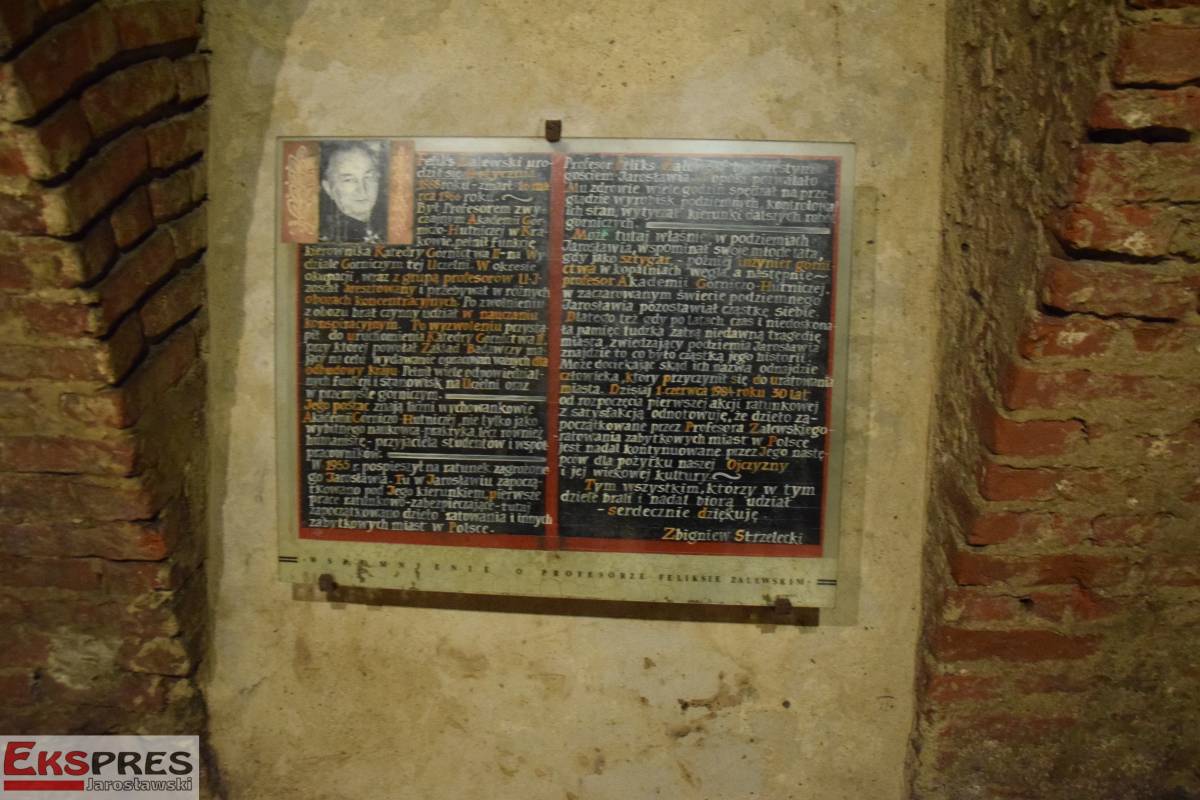 Feliks Zalewski uro-
dził się
1888 roku - zmarł 10 mar
ca 1966 roku.
Był Profesorem zwy-
czajnym Akademii Gó
rniczo-Hutniczej w Kra
kowie, pełnił funkcję
kierownika Katedry Górnictwa II na Wy
dziale Górniczym tej Uczelni. W okresie
okupacji wraz z grupą profesorów U.J.
został aresztowany i przebywał w różnych
obozach koncentracyjnych. Po zwolnieniu
z obozu brał czynny udział w nauczaniu
konspiracyjnym. Po wyzwoleniu przystą-
pił do uruchomienia Katedry Górnictwa II
przy której powstał Zakład Badawczy ma
jący na celu wydawanie dla
odbudowy kraju. Pełnił wiele odpowiedzial
nych funkcji i stanowisk na Uczelni oraz
w przemyśle górniczym.
Jego postać znają liczni wychowankowie
Akademii Górniczo Hutniczej nie tylko jako
wybitnego naukowca i praktyka lecz i jako
humanistę - przyjaciela studentów i współ
pracowników.
W 1955 r. pospieszył na ratunek zagrożone
go Jarosławia. Tu w Jarosławiu zapocząt
kowano pod Jego kierunkiem pierwsze
prace ratunkowo-zabezpieczające - tutaj
zapoczątkowano dzieło ratowania i innych
zabytkowych miast w Polsce-
Profesor Feliks Zalewski
gościem Jarosławia
Mu zdrowie wiele godzin spędzał na prze
glądzie wyrobisk podziemnych, kontrolował
ich stan, wytyczał kierunki dalszych robót
górniczych.
Może tutaj właśnie w podziemiach
Jarosławia wspominał swoje lata,
gdy jako sztygar, później inżynier górni
ctwa w kopalniach węgla a następnie -
profesor Akademii Górniczo-Hutniczej-
w zaczarowanym świecie podziemnego
Jarosławia pozostawiał cząstkę siebie.
Dlatego też gdy po latach, czas i niedoskona
ła pamięć ludzka zatrą niedawną tragedię
miasta, zwiedzający podziemia Jarosławia
znajdzie to co było cząstką jego historii.
Może dociekając skąd ich nazwa odnajdzie
człowieka, który przyczynił się do uratowania
miasta. Dzisiaj 1 czerwca 1984 roku 30 lat
od rozpoczęcia pierwszej akcji ratunkowej
z satysfakcją odnotowuję, że dzieło za-
początkowane przez Profesora Zalewskiego-
ratowania zabytkowych miast w Polsce
jest nadal kontynuowane przez Jego nastę-
pców dla pożytku naszej Ojczyzny
i jej wiekowej kultury.
Tym wszystkim, którzy w tym
dziele brali i nadal biorą udział
- serdecznie dziękuję -
Zbigniew Strzelecki
WSPOMNIENIE O PROFESORZE FELIKSIE ZALEWSKIM
EKSPRES
Jarosławski